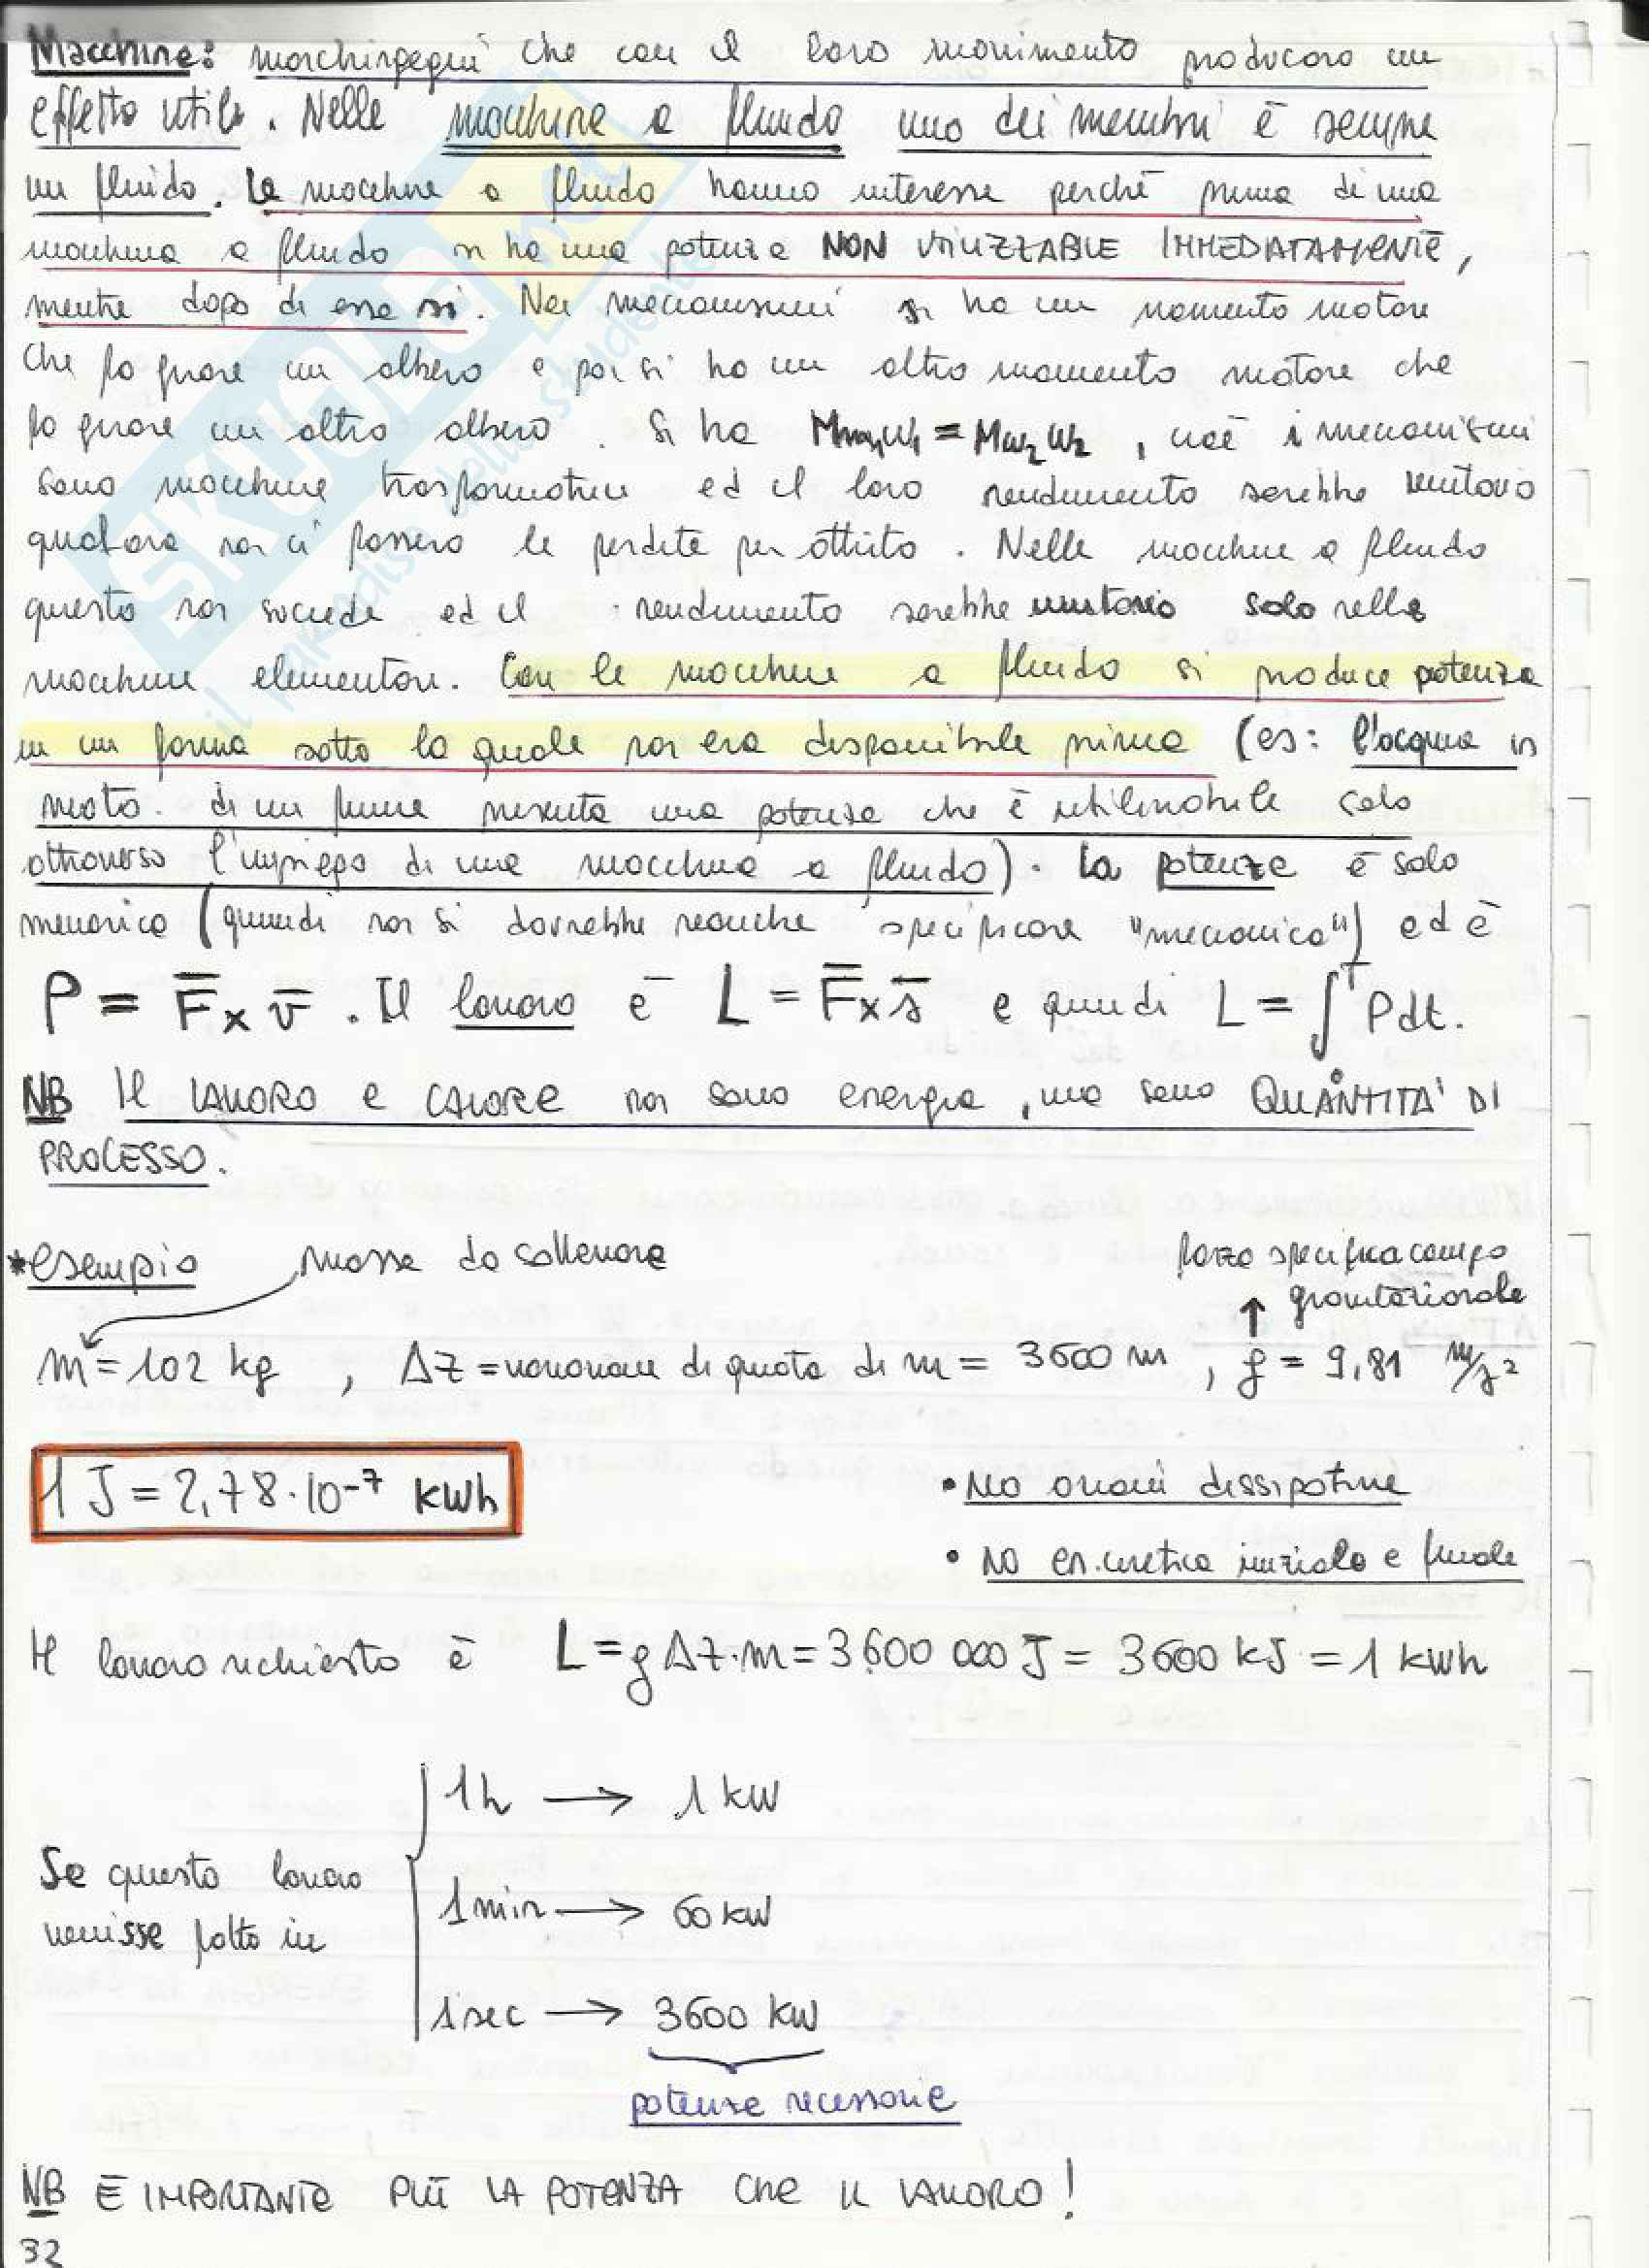 Macchine: marchingegni che con il loro movimento producono un
effetto utile. Nelle macchine a fluido uno dei membri è sempre
un fluido. Le macchine a fluido hanno interesse perché prima di una
macchina a fluido si ha una potenza NON UTILIZZABILE IMMEDIATAMENTE,
mentre dopo di essa sì. Nei meccanismi si ha un momento motore
che fa girare un albero e poi si ha un altro momento motore che
fa girare un altro albero. Si ha Mm₁ω₁ = Mm₂ω₂, cioè i meccanismi
sono macchine trasformatrici ed il loro rendimento sarebbe unitario
qualora non ci fossero le perdite per attrito. Nelle macchine a fluido
questo non succede ed il rendimento sarebbe unitario solo nelle
macchine elementari. Con le macchine a fluido si produce potenza
in un forma sotto la quale non era disponibile prima (es: l'acqua in
moto di un fiume presenta una potenza che è utilizzabile solo
attraverso l'impiego di una macchina a fluido). La potenza è solo
meccanica (quindi non si dovrebbe neanche specificare "meccanica") ed è
P = F̅ x v̅. Il lavoro è L = F̅ x s̅ e quindi L = ∫₀ᵀ P dt.
NB Il LAVORO e CALORE non sono energia, ma sono QUANTITA' DI
PROCESSO.
*esempio massa da sollevare forza specifica campo
gravitazionale
m = 102 kg, Δz = variazione di quota di m = 3600 m, g = 9,81 m/s²
1 J = 2,78·10⁻⁷ kWh
• NO azioni dissipative
• NO en. cinetica iniziale e finale
Il lavoro richiesto è L = g Δz·m = 3600 000 J = 3600 kJ = 1 kWh
Se questo lavoro
venisse fatto in
1h → 1 kW
1 min → 60 kW
1 sec → 3600 kW
potenze necessarie
NB È IMPORTANTE PIÙ LA POTENZA CHE IL LAVORO!
32
SKUOLA.net
il paradiso dello studente